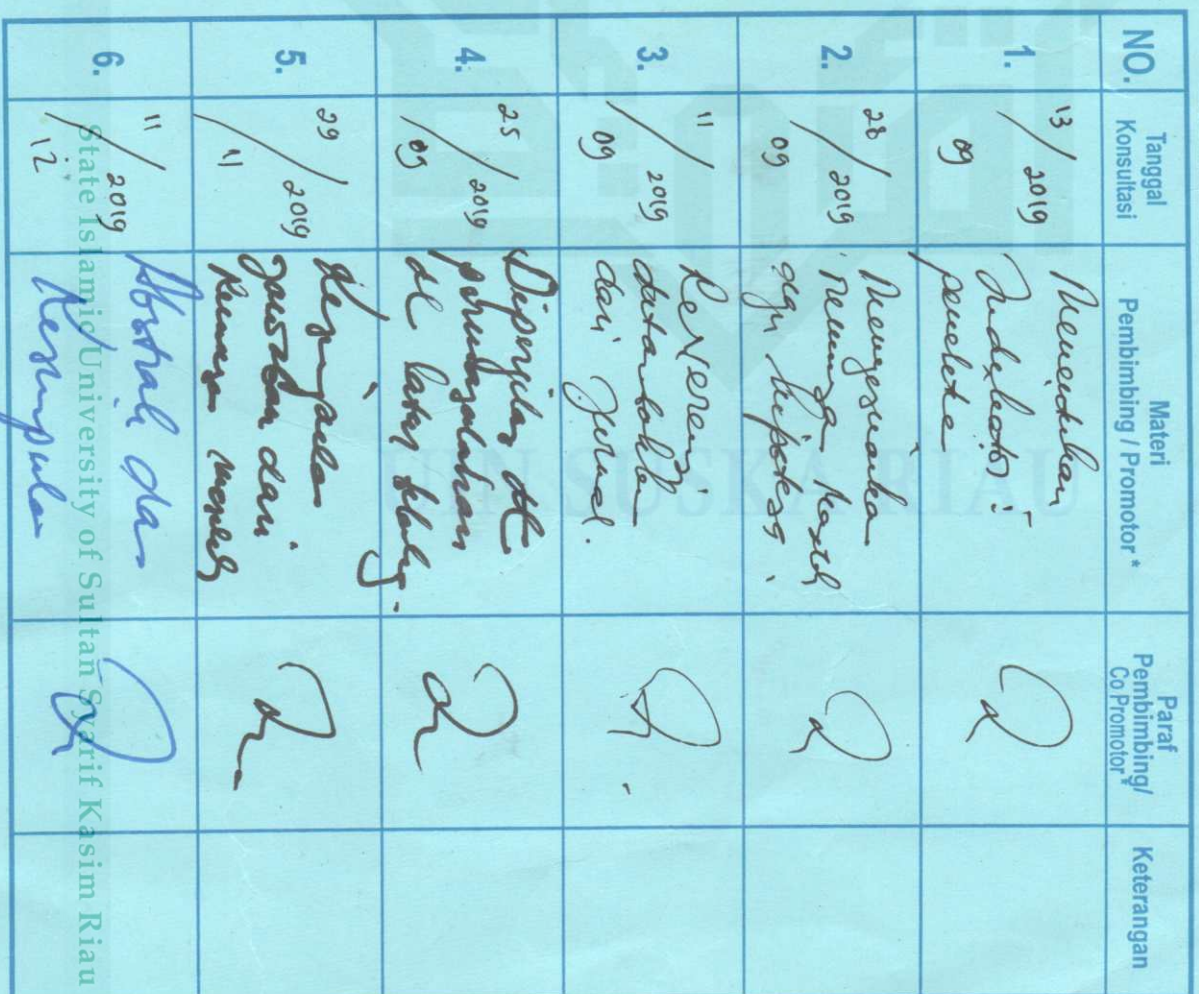 NO.
Tanggal
Konsultasi
Materi
Pembimbing / Promotor *
Paraf
Pembimbing/
Co Promotor*
Keterangan
1.
13/09 2019
Menentukan
Indikator
peneliti
2.
28/09 2019
Menyesuaikan
hipotesis
3.
11/09 2019
Referensi
ditambahkan
dari Jurnal.
4.
25/09 2019
Diperjelas
permasalahan
latar blakg.
5.
29/11 2019
Kesimpulan
Jawaban dari
Rumusan masalah
6.
11/12 2019
Abstrak dan
Kesimpulan
UIN SUSKA RIAU
State Islamic University of Sultan Syarif Kasim Riau